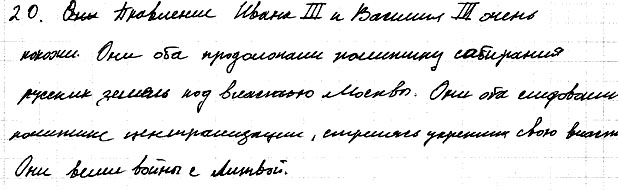 20. Они Правление Ивана III и Василия III очень
похожи. Они оба продолжали политику собирания
русских земель под властью Москвы. Они оба следовали
политике централизации, стремясь укрепить свою власть
Они вели войны с Литвой.